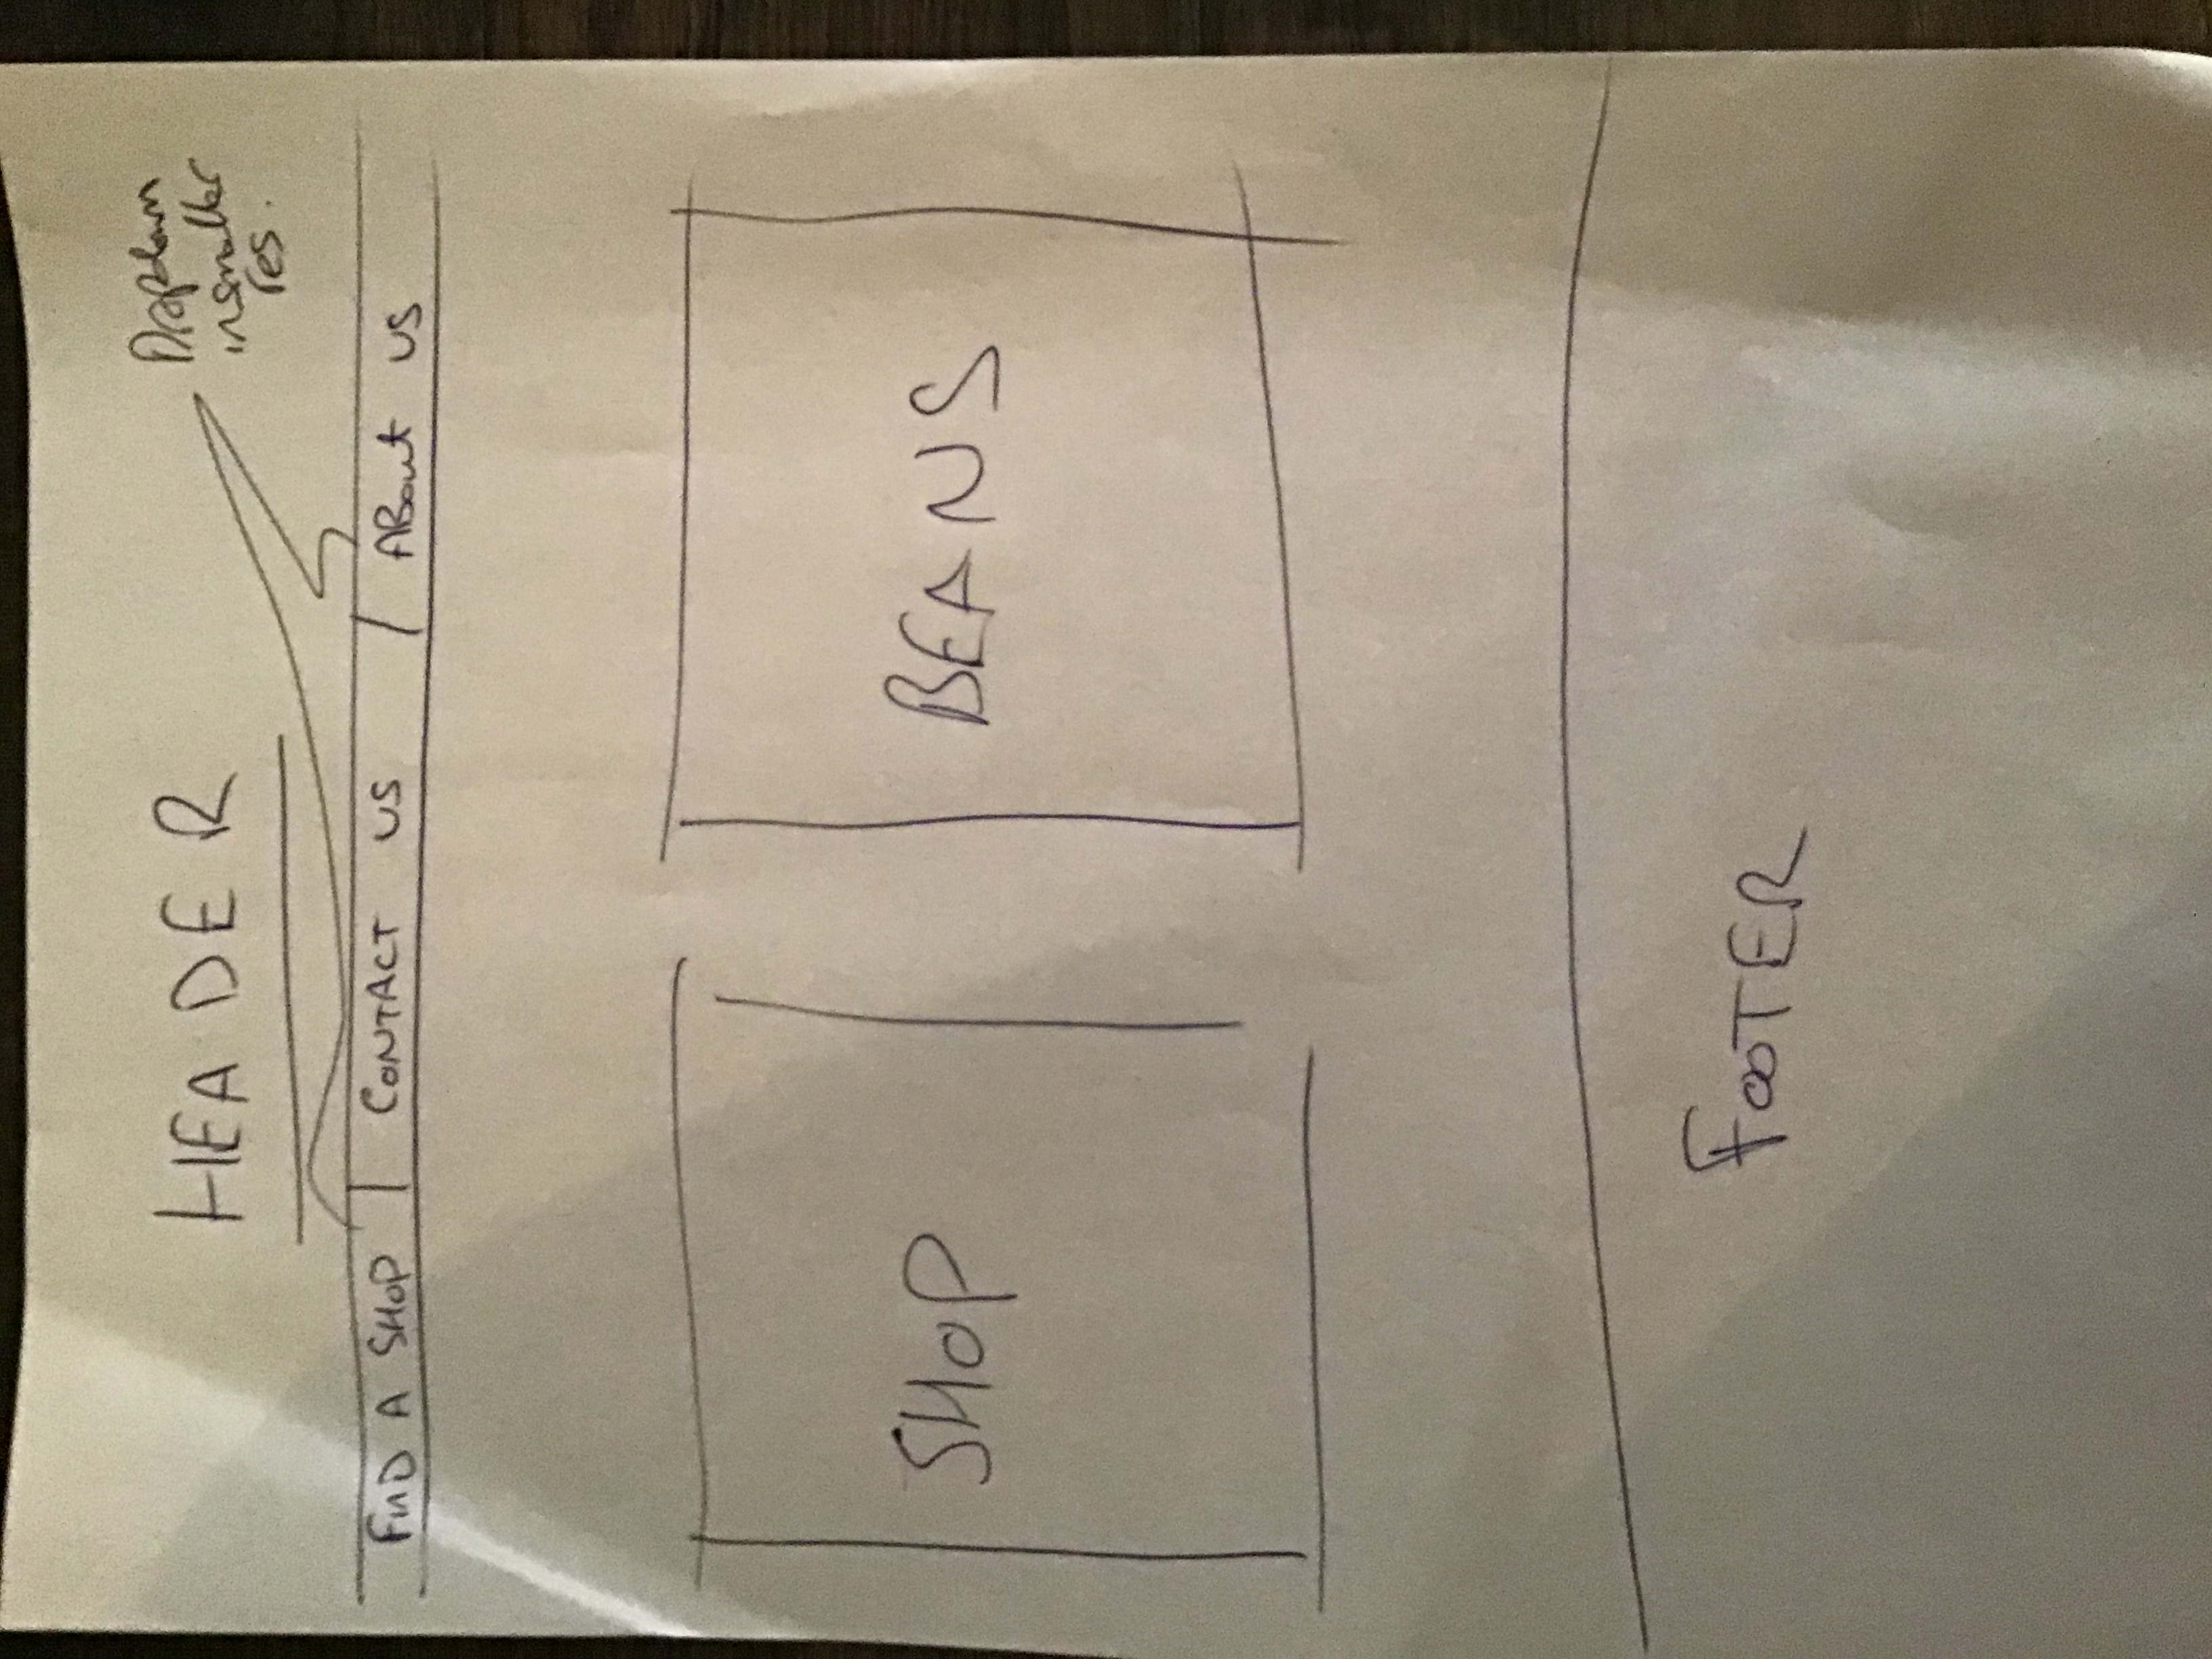 HEADER
Dropdown
in smaller
res.
FIND A SHOP | CONTACT US | ABout US
SHOP
BEANS
FOOTER